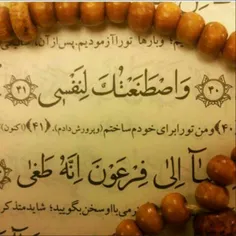 وبارها تو را آزمودیم. پس از آن،
﴿٤٠﴾ وَاصْطَنَعْتُكَ لِنَفْسِي ﴿٤١﴾
(۴۰) ومن تو را برای خودم ساختم (و پرورش دادم). (۴۱) (اکنون)
إِلَىٰ فِرْعَوْنَ إِنَّهُ طَغَىٰ
با او سخن بگویید؛ شاید متذکر